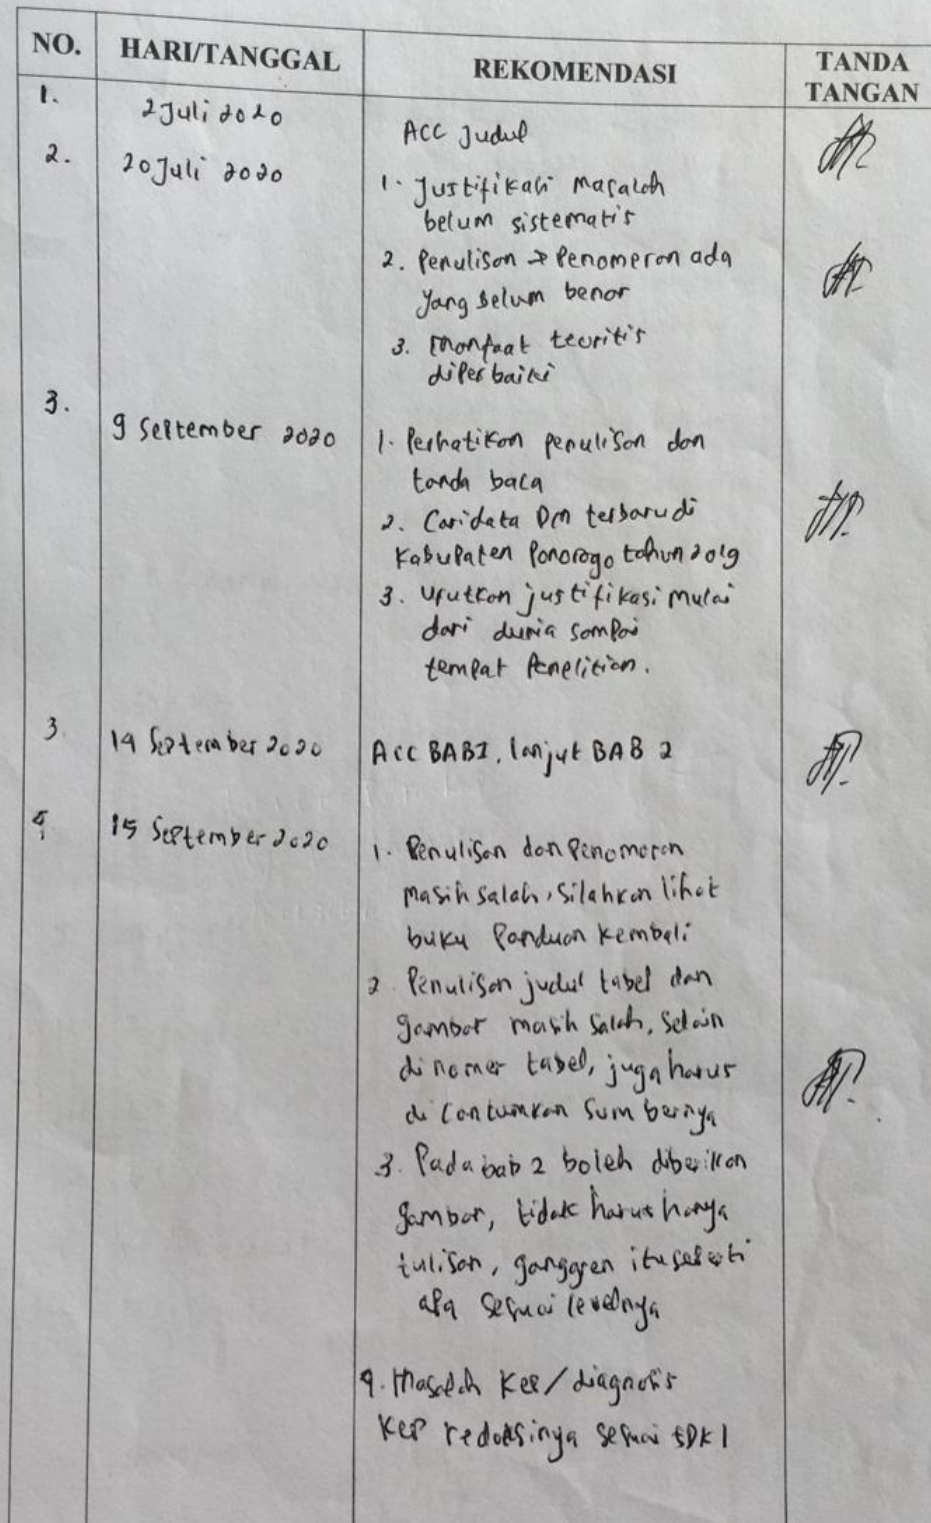 NO. HARI/TANGGAL REKOMENDASI TANDA TANGAN
1. 2 Juli 2020 ACC Judul
2. 20 Juli 2020 1. Justifikasi Masalah
belum sistematis
2. Penulisan → Penomeran ada
yang belum benar
3. Manfaat teoritis
diperbaiki
3. 9 September 2020 1. Perhatikan penulisan dan
tanda baca
2. Cari data DM terbaru di
Kabupaten Ponorogo tahun 2019
3. Urutkan justifikasi mulai
dari dunia sampai
tempat Penelitian.
3. 14 September 2020 Acc BAB I, lanjut BAB 2
4. 15 September 2020 1. Penulisan dan Penomeran
masih salah, silahkan lihat
buku Panduan kembali
2. Penulisan judul tabel dan
gambar masih salah, selain
di nomer tabel, juga harus
di cantumkan sumbernya
3. Pada bab 2 boleh diberikan
gambar, tidak harus hanya
tulisan, ganggren itu seperti
apa sesuai levelnya
4. Masalah Kep/diagnosis
Kep redaksinya sesuai SDKI